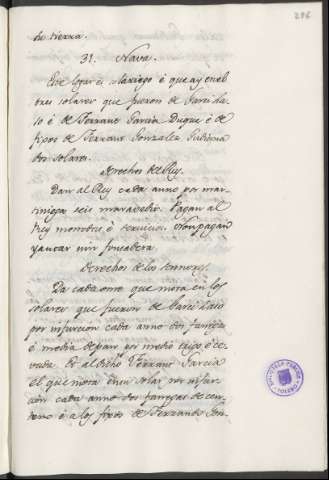 206
de tierra.
31. Nava.
Este logar es Abadengo é que ay en el
tres solares que fueron de Garci la
so é de Ferrant Garcia Duque é de
fijos de Ferrant Gonzalez
dos solares.
Derechos del Rey.
Dan al Rey cada anno por mar-
tiniega seis maravedis. Pagan al
Rey monedas é servicios. Non pagan
yantar nin fonsadera.
Derechos de los Sennores.
Da cada omo que mora en los
solares que fueron de Garci Laso
por infurcion cada anno dos fanegas
é media de pan por medio trigo é ce-
vada. Et al dicho Ferrant Garcia
el que mora en su solar por infur-
cion cada anno dos fanegas de cen-
teno é a los fijos de Ferrando Gon-
BIBLIOTECA PUBLICA
TOLEDO